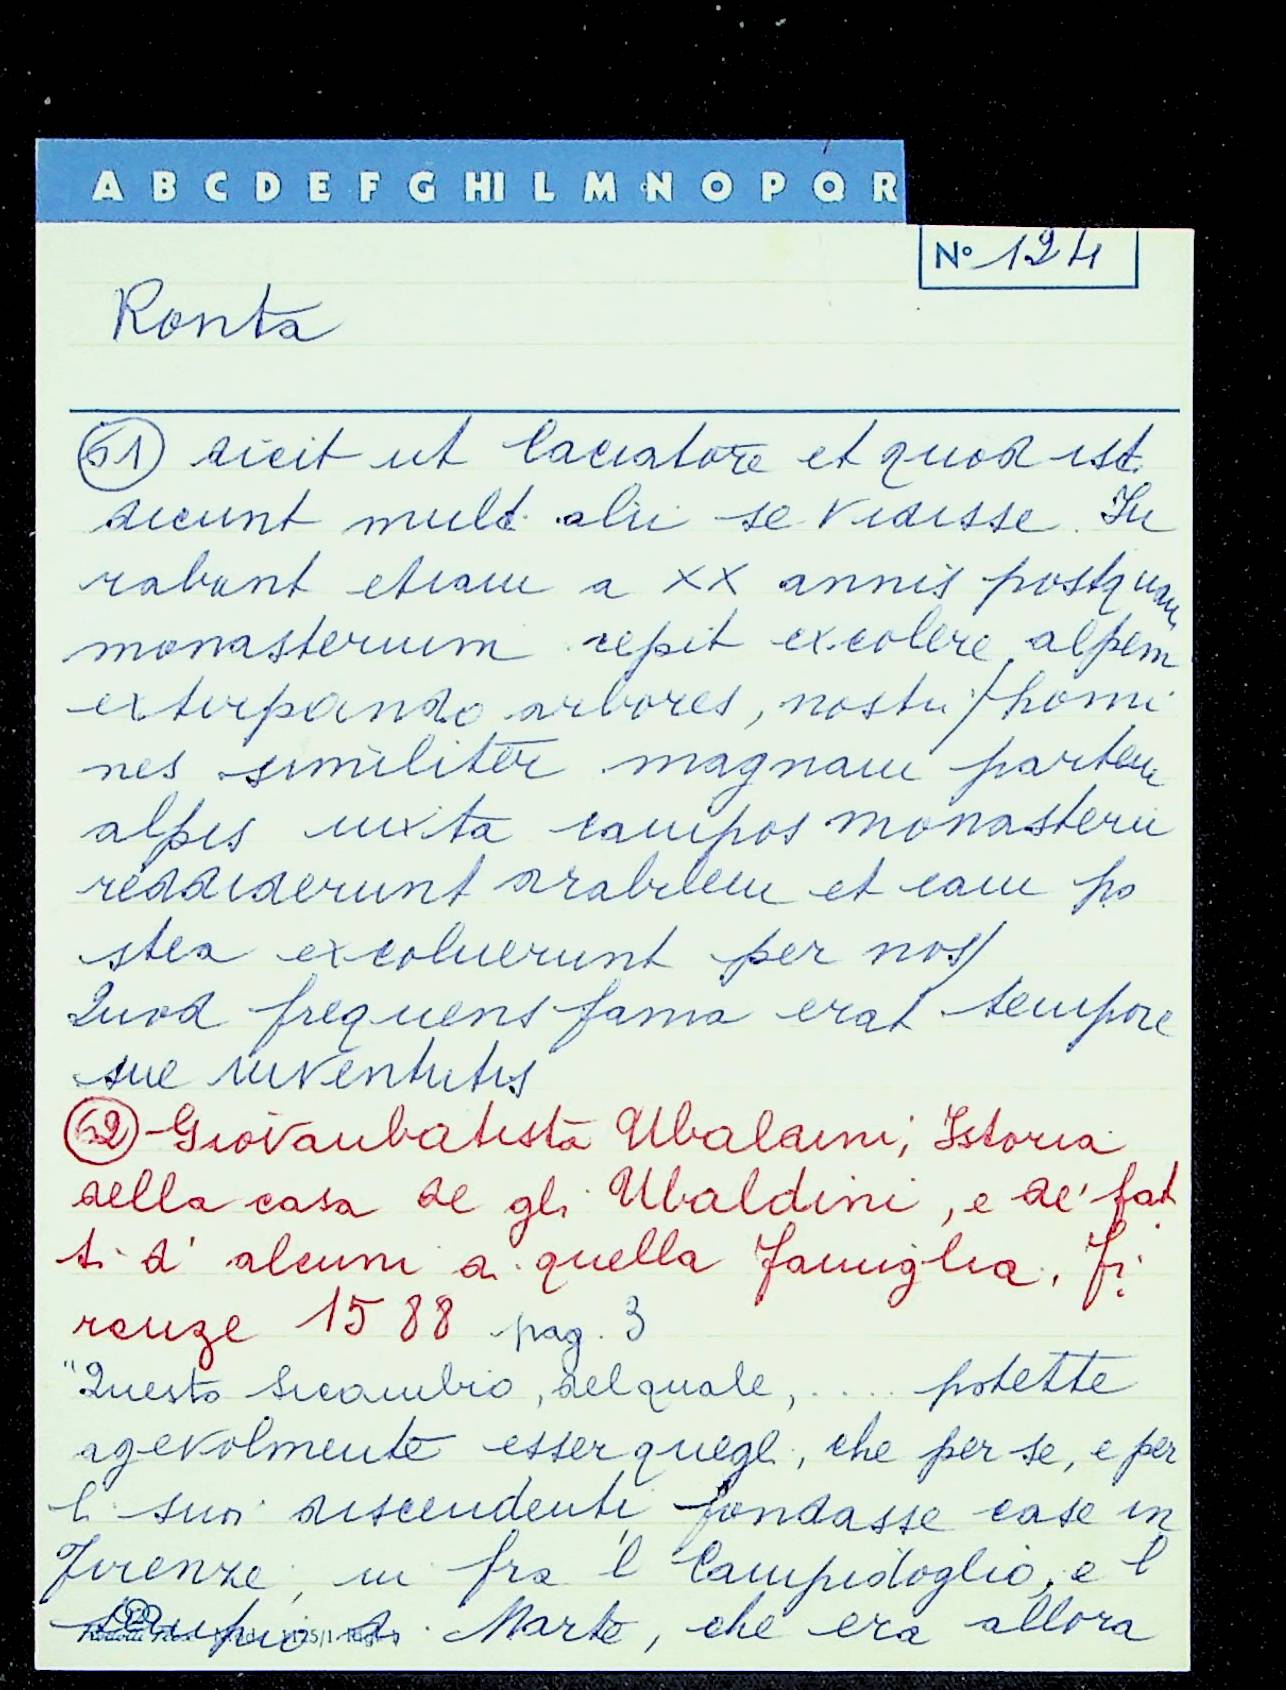 A B C D E F G HI L M N O P Q R
N° 124
Ronta
61 dicit ut Cacciatore et quod ist.
dicunt mult. alii se vidisse. Iu
rabant etiam a XX annis postquam
monasterium cepit excolere alpem
extirpando arbores, nostri/homi
nes similiter magnam partem
alpis iuxta campos monasterii
reddiderunt arabilem et eam po
stea excoluerunt per nos/
Quod frequens fama erat tempore
sue iuventutis
62 - Giovanbatista Ubaldini, Istoria
della casa de gli Ubaldini, e de' fat
ti d' alcuni di quella famiglia, Fi
renze 1588 pag. 3
"Questo Sicambio, del quale, .... potette
agevolmente esser quegli, che per se, e per
li suoi discendenti, fondasse case in
Firenze, in fra 'l Campidoglio, e 'l
campo di Marte, che era allora